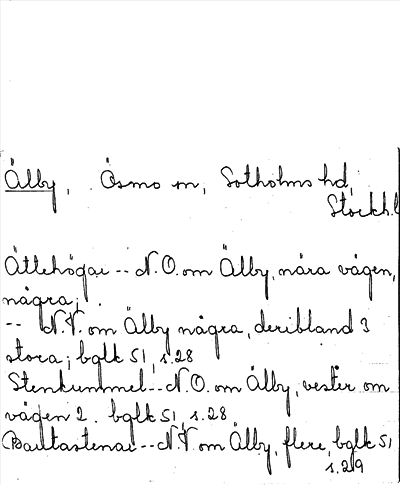 Älby, Ösmo sn, Sotholms hd,
Stockh.l
Ättehögar -- N.O. om Älby, nära vägen,
några;
-- N.V. om Älby några, deribland 3
stora; bglk 51, s.28
Stenkummel -- N.O. om Älby, vester om
vägen 2. bglk 51, s.28
Bautastenar -- N.V om Älby, flere, bglk 51
s.29